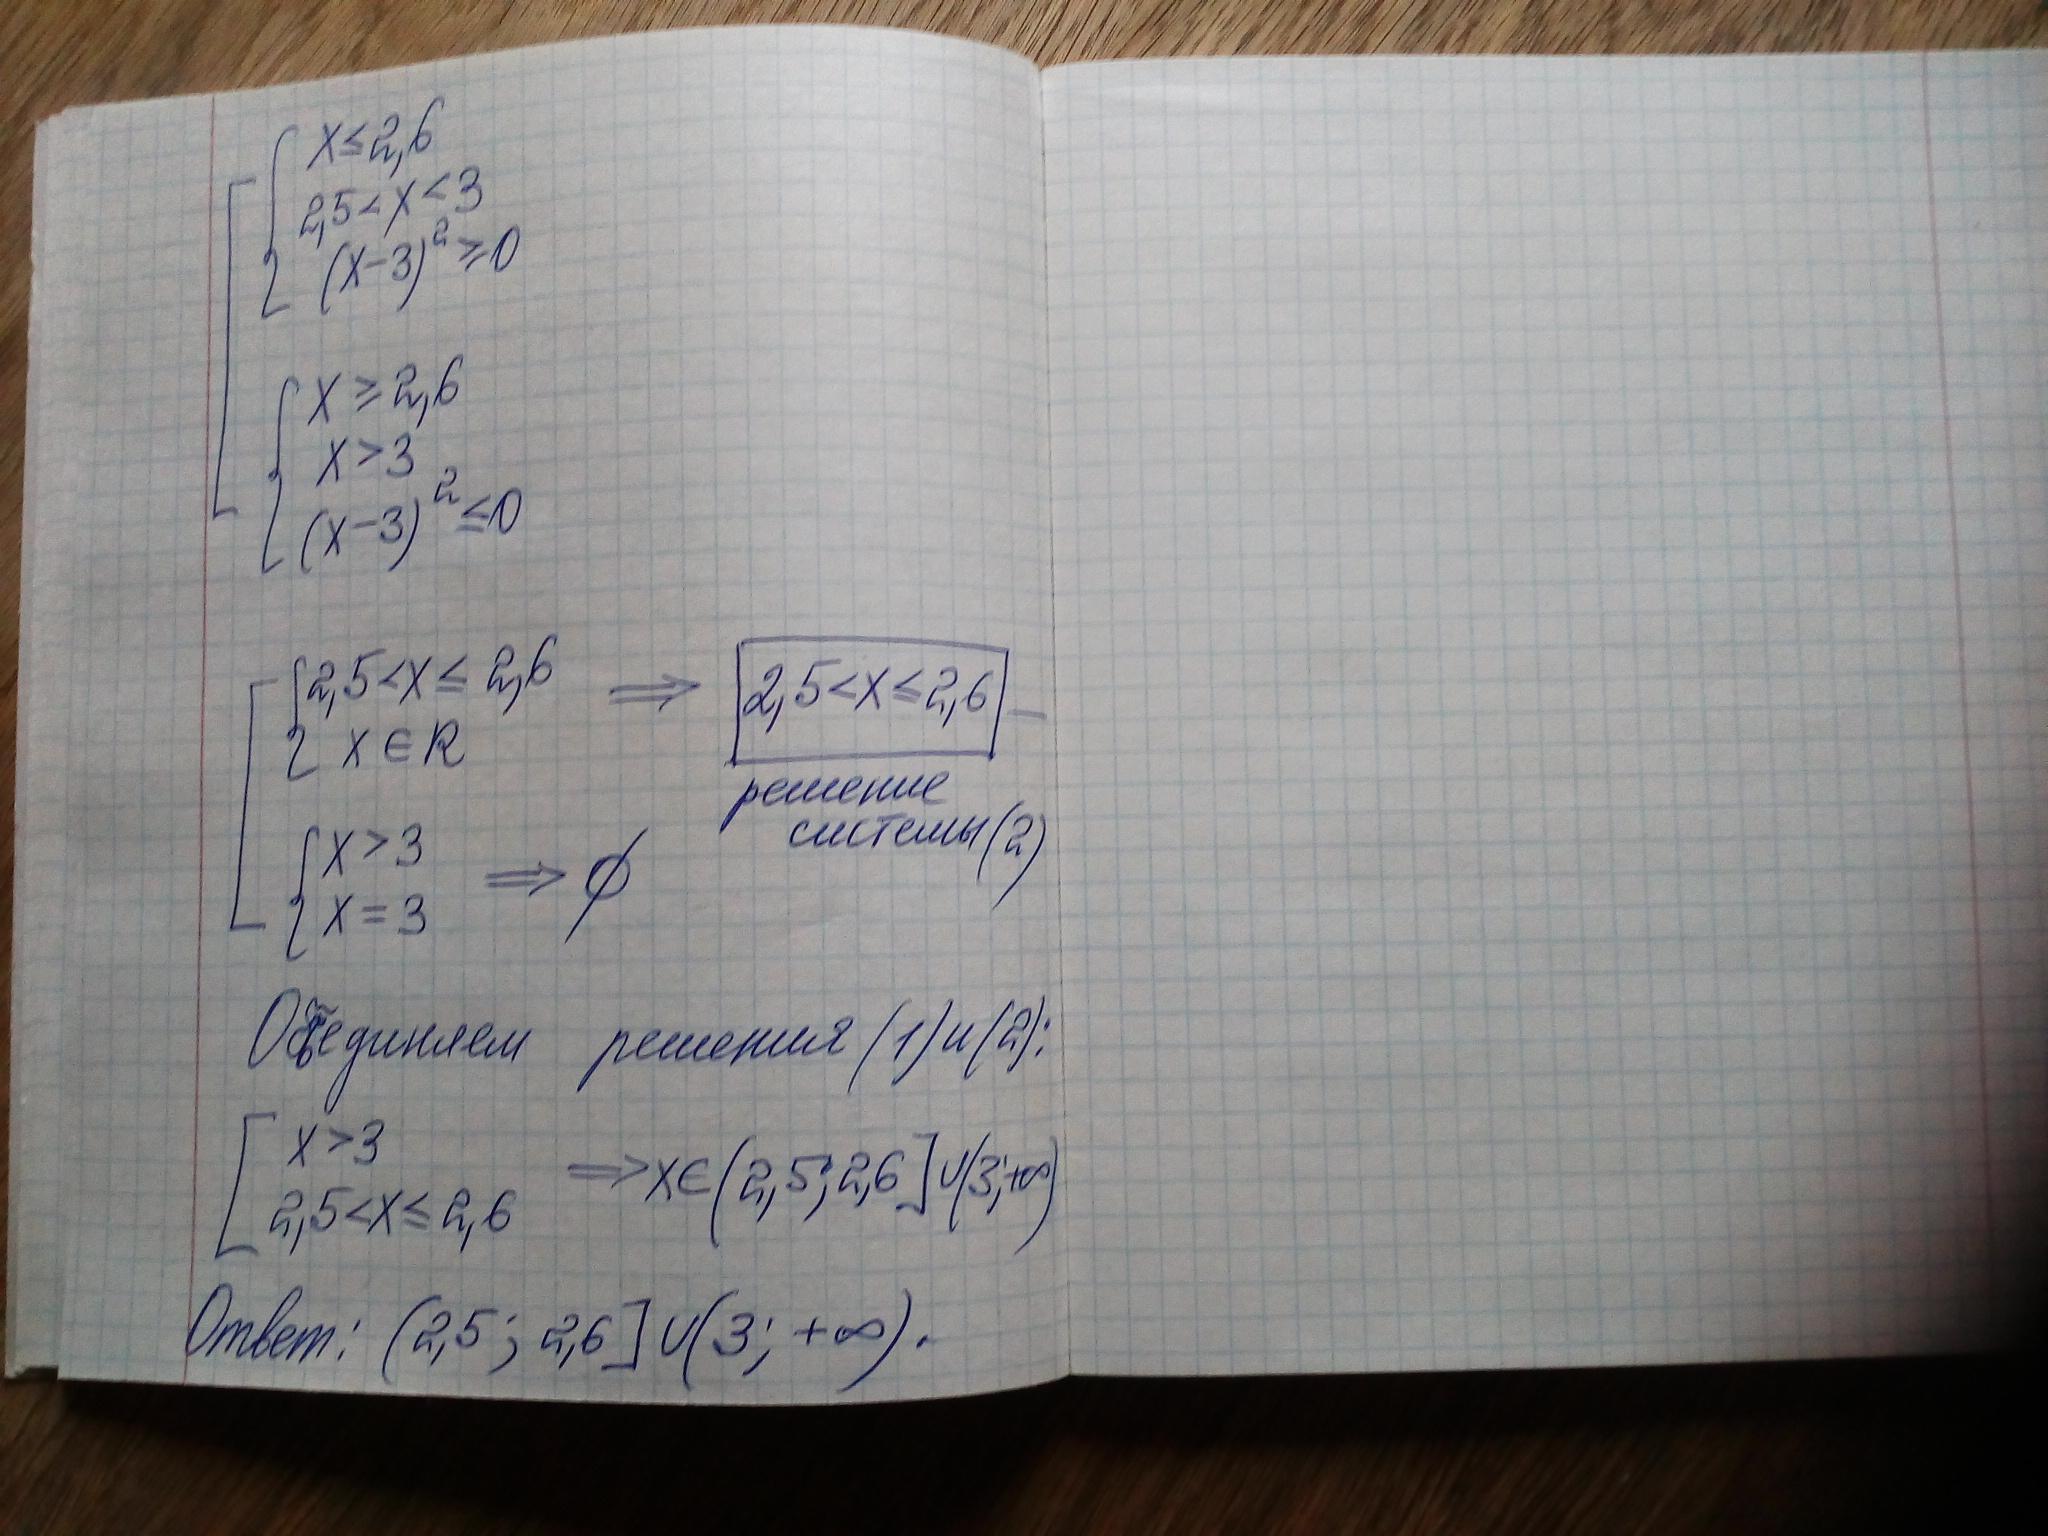 x ≤ 2,6
2,5 < x < 3
(x-3)² ≥ 0
x ≥ 2,6
x > 3
(x-3)² ≤ 0
2,5 < x ≤ 2,6 ⇒ 2,5 < x ≤ 2,6
x ∈ R
решение
системы (2)
x > 3
x = 3 ⇒ ∅
Объединяем решения (1) и (2):
x > 3
2,5 < x ≤ 2,6 ⇒ x ∈ (2,5; 2,6] ∪ (3; +∞)
Ответ: (2,5; 2,6] ∪ (3; +∞).